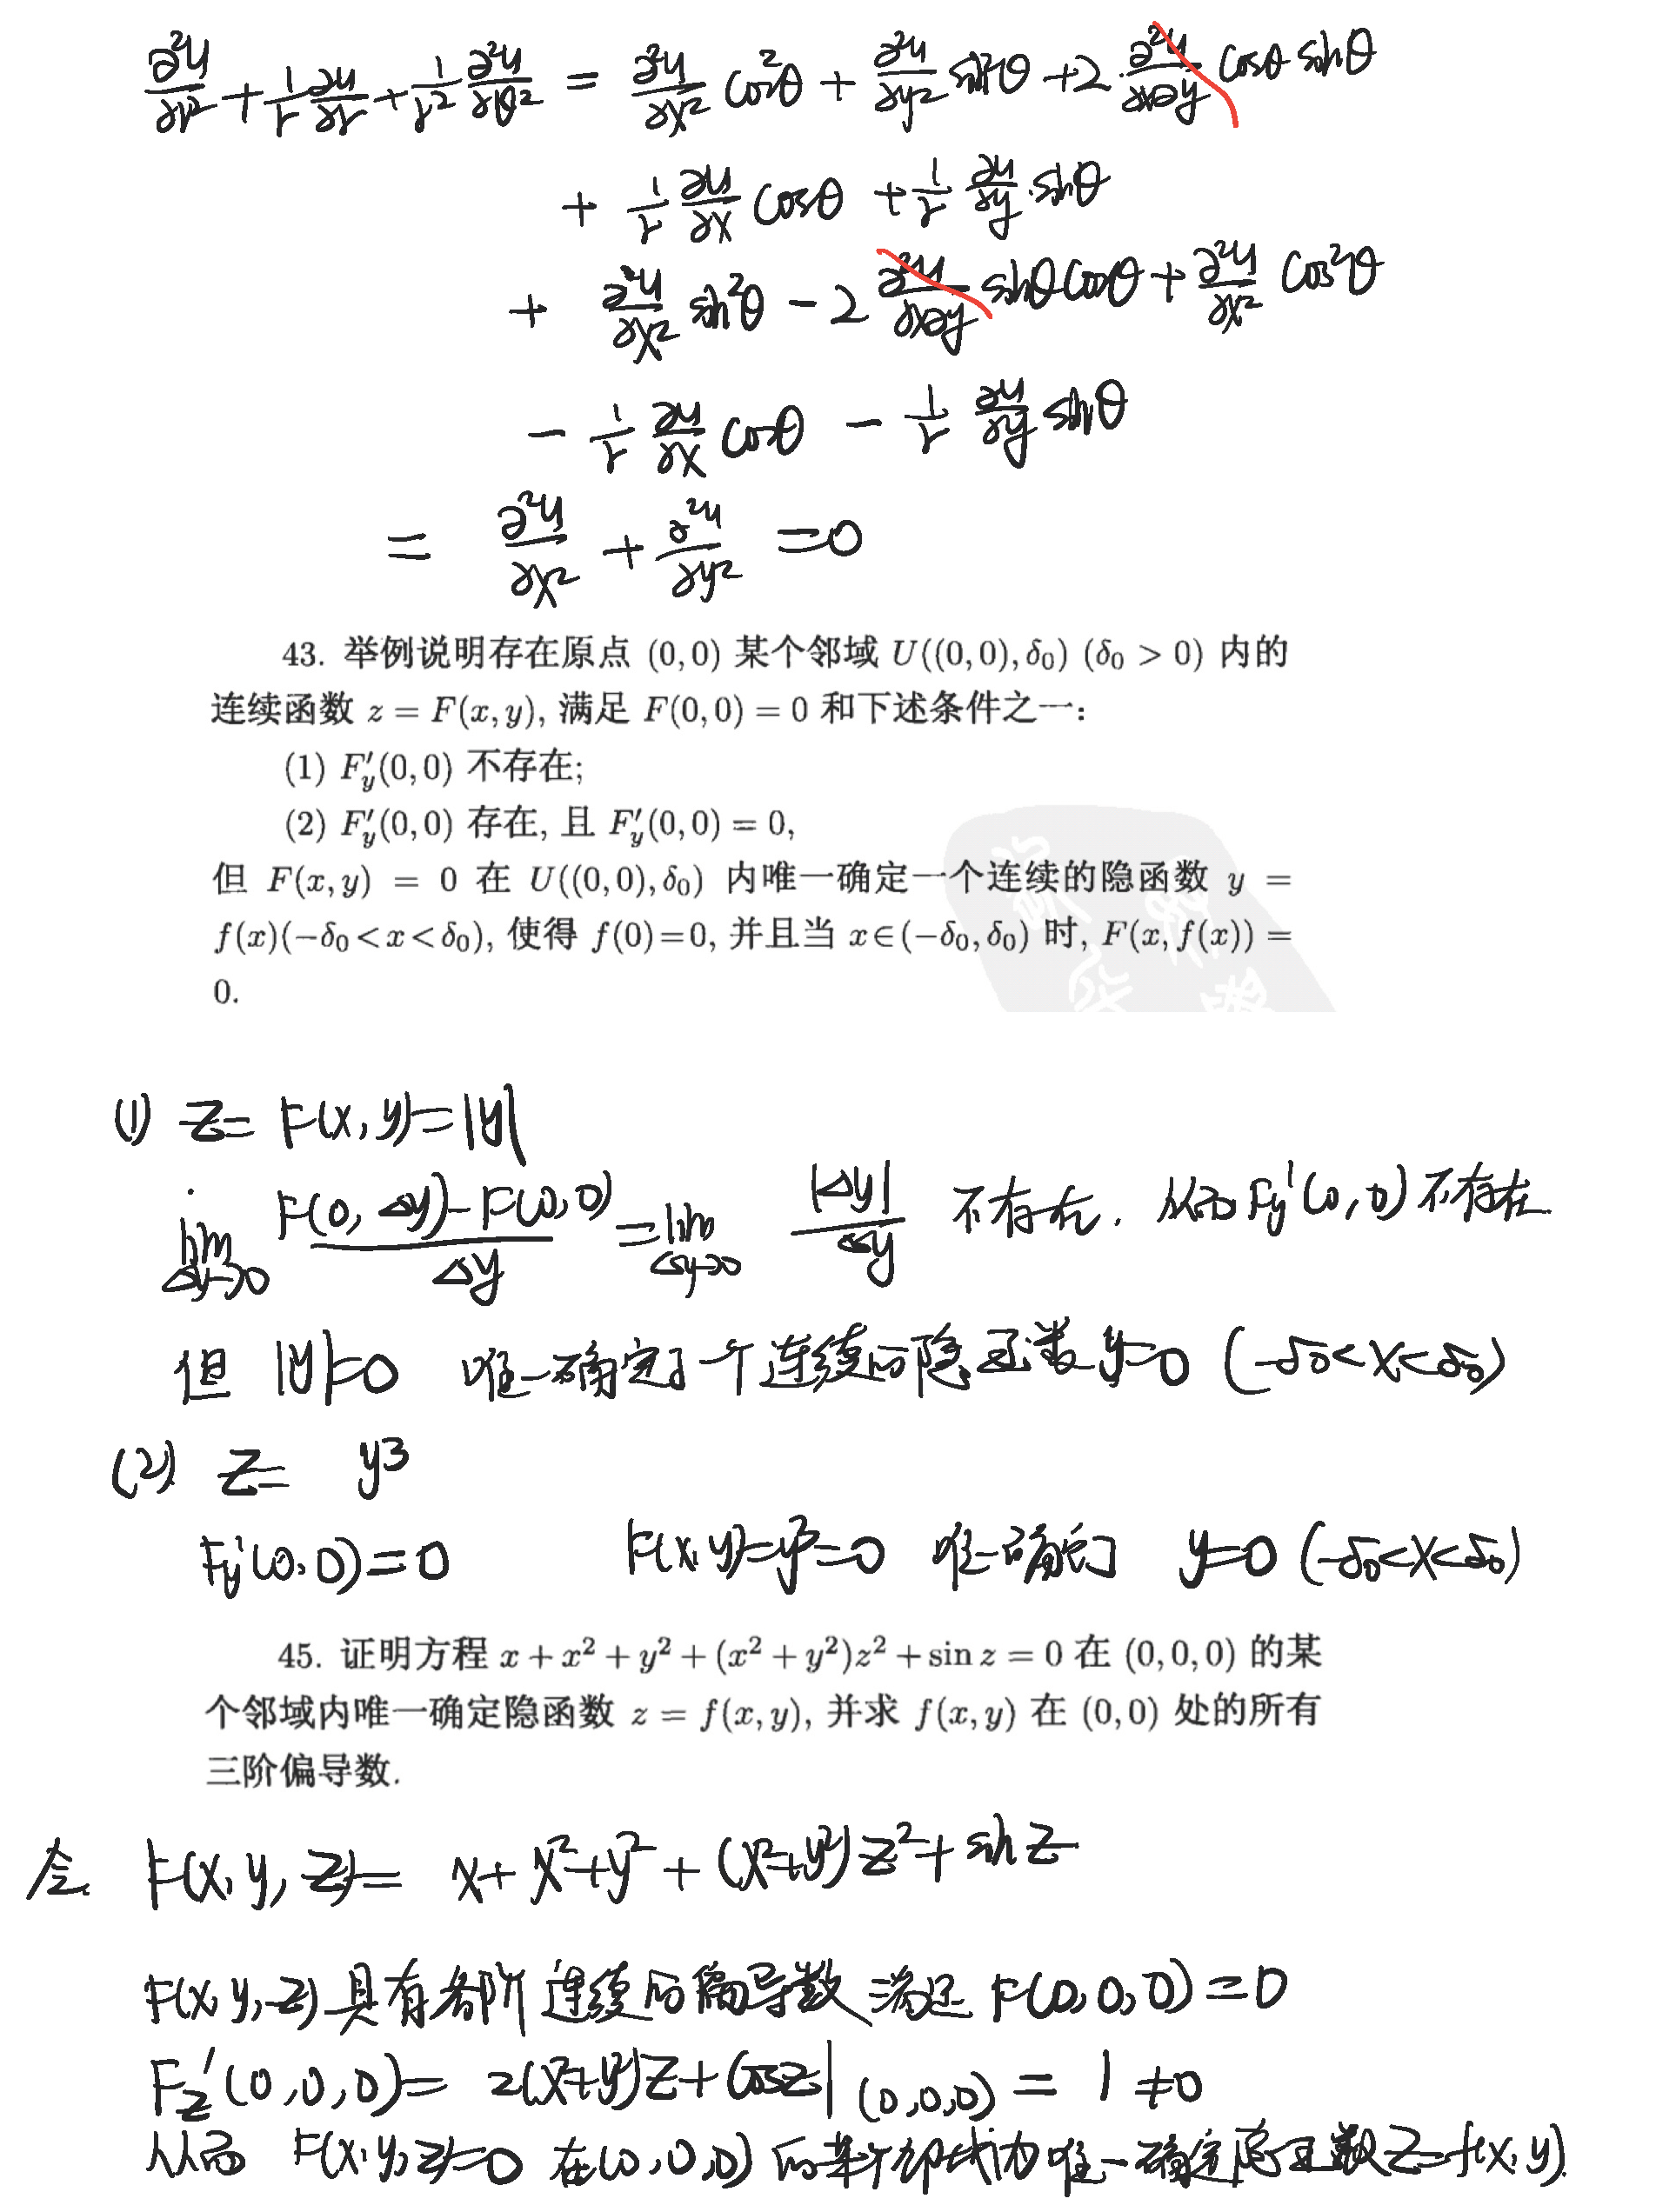 ∂²u/∂r² + 1/r ∂u/∂r + 1/r² ∂²u/∂θ² = ∂²u/∂x² cos²θ + ∂²u/∂y² sin²θ + 2 · ∂²u/∂x∂y cosθ sinθ
+ 1/r ∂u/∂x cosθ + 1/r ∂u/∂y · sinθ
+ ∂²u/∂x² sin²θ − 2 ∂²u/∂x∂y sinθ cosθ + ∂²u/∂x² cos²θ
− 1/r ∂u/∂x cosθ − 1/r ∂u/∂y sinθ
= ∂²u/∂x² + ∂²u/∂y² = 0
43. 举例说明存在原点 (0,0) 某个邻域 U((0,0),δ₀) (δ₀ > 0) 内的
连续函数 z = F(x,y), 满足 F(0,0) = 0 和下述条件之一:
(1) F′y(0,0) 不存在;
(2) F′y(0,0) 存在, 且 F′y(0,0) = 0,
但 F(x,y) = 0 在 U((0,0),δ₀) 内唯一确定一个连续的隐函数 y =
f(x)(−δ₀<x<δ₀), 使得 f(0)=0, 并且当 x∈(−δ₀,δ₀) 时, F(x,f(x)) =
0.
(1) z = F(x,y) = |y|
lim Δy→0 F(0,Δy)−F(0,0)/Δy = lim Δy→0 |Δy|/Δy 不存在. 从而 Fy′(0,0) 不存在.
但 |y|=0 唯一确定了一个连续的隐函数 y=0 (−δ₀<x<δ₀)
(2) z = y³
Fy′(0,0) = 0 F(x,y)=y³=0 唯一确定了 y=0 (−δ₀<x<δ₀)
45. 证明方程 x + x² + y² + (x² + y²)z² + sin z = 0 在 (0,0,0) 的某
个邻域内唯一确定隐函数 z = f(x,y), 并求 f(x,y) 在 (0,0) 处的所有
三阶偏导数.
令 F(x,y,z) = x + x² + y² + (x²+y²)z² + sin z
F(x,y,z) 具有各阶连续的偏导数 满足 F(0,0,0) = 0
Fz′(0,0,0) = 2(x²+y²)z + cosz|(0,0,0) = 1 ≠ 0
从而 F(x,y,z)=0 在(0,0,0) 的某个邻域内唯一确定隐函数 z=f(x,y).